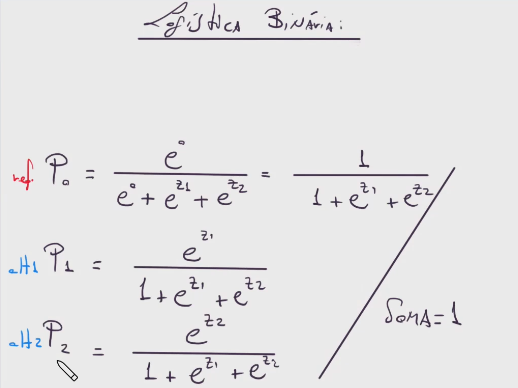 Logística Binária:
ref. P₀ = e⁰ / (e⁰ + e^z₁ + e^z₂) = 1 / (1 + e^z₁ + e^z₂)
alt1 P₁ = e^z₁ / (1 + e^z₁ + e^z₂)
SOMA = 1
alt2 P₂ = e^z₂ / (1 + e^z₁ + e^z₂)